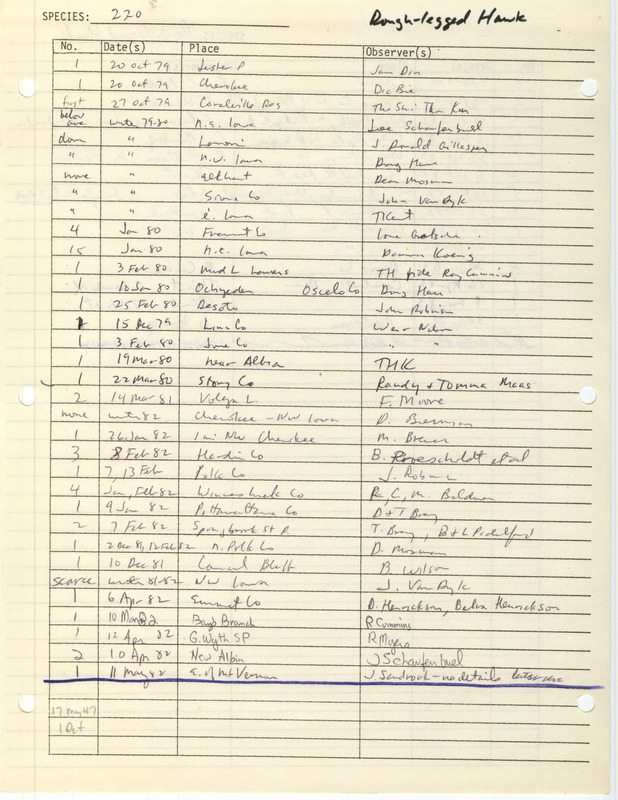 SPECIES: 220 Rough-legged Hawk
No. Date(s) Place Observer(s)
1 20 Oct 79 Lester P
1 20 Oct 79 Cherokee Dic Bie
first 27 Oct 79 Coralville Res
below ave winter 79-80 n.e. Iowa Lee Schoenfelder
down " Lamoni J. Donald Gillaspey
" " n.w. Iowa Doug Harr
none " Elkhart Dean Mosman
" " Sioux Co John Van Dyk
" " e. Iowa T Kent
4 Jan 80 Fremont Co
15 Jan 80 n.e. Iowa Darwin Koenig
1 3 Feb 80 TH fide Ray Cummins
1 10 Jan 80 Ocheyedan Osceola Co Doug Harr
1 25 Feb 80 Desoto John Robinson
1 15 Dec 79 Linn Co Weir Nelson
1 3 Feb 80 Jones Co " "
1 19 Mar 80 near Albia THK
1 22 Mar 80 Story Co Randy + Tomma Maas
2 14 Mar 81 Volga L. F. Moore
none winter 82 Cherokee - NW Iowa D. Bierman
1 26 Jan 82 1 mi NW Cherokee M. Brewer
3 8 Feb 82 Hardin Co B. et al
1 7, 13 Feb Polk Co J. Robinson
4 Jan, Feb 82 Winneshiek Co R, C, M. Baldwin
1 9 Jan 82 Pottawattamie Co D + T Bray
2 7 Feb 82 Springbrook St P. T. Bray, B + L Padelford
1 2 Dec 81, 12 Feb 82 n. Polk Co D. Mosman
1 10 Dec 81 Council Bluff B. Wilson
scarce winter 81-82 NW Iowa J. Van Dyk
1 6 Apr 82 Emmet Co D. Henrickson, Beltra Henrickson
1 10 Mar 82 Bays Branch R Cummins
1 12 Apr 82 G. Wyth SP R Myers
2 10 Apr 82 New Albin J Schaufenbuel
1 11 May 82 E. of Mt Vernon J. Sandrock - no details
17 May 47
1 Oct